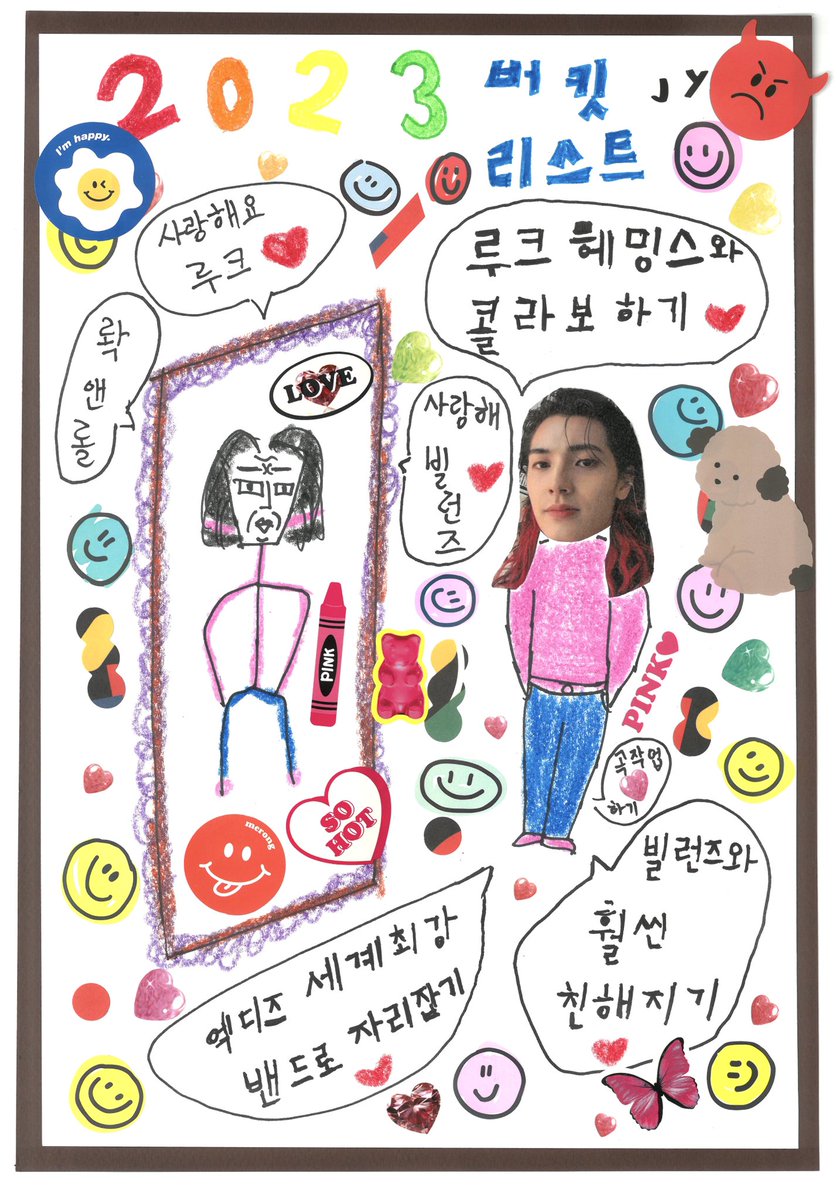 2023 버킷
리스트
JY
I'm happy.
사랑해요
루크
루크 헤밍스와
콜라보하기
롹
앤
롤
LOVE
사랑해
빌런즈
PINK
PINK
곡작업
하기
SO
HOT
merong
빌런즈와
훨씬
친해지기
엑디즈 세계최강
밴드로 자리잡기